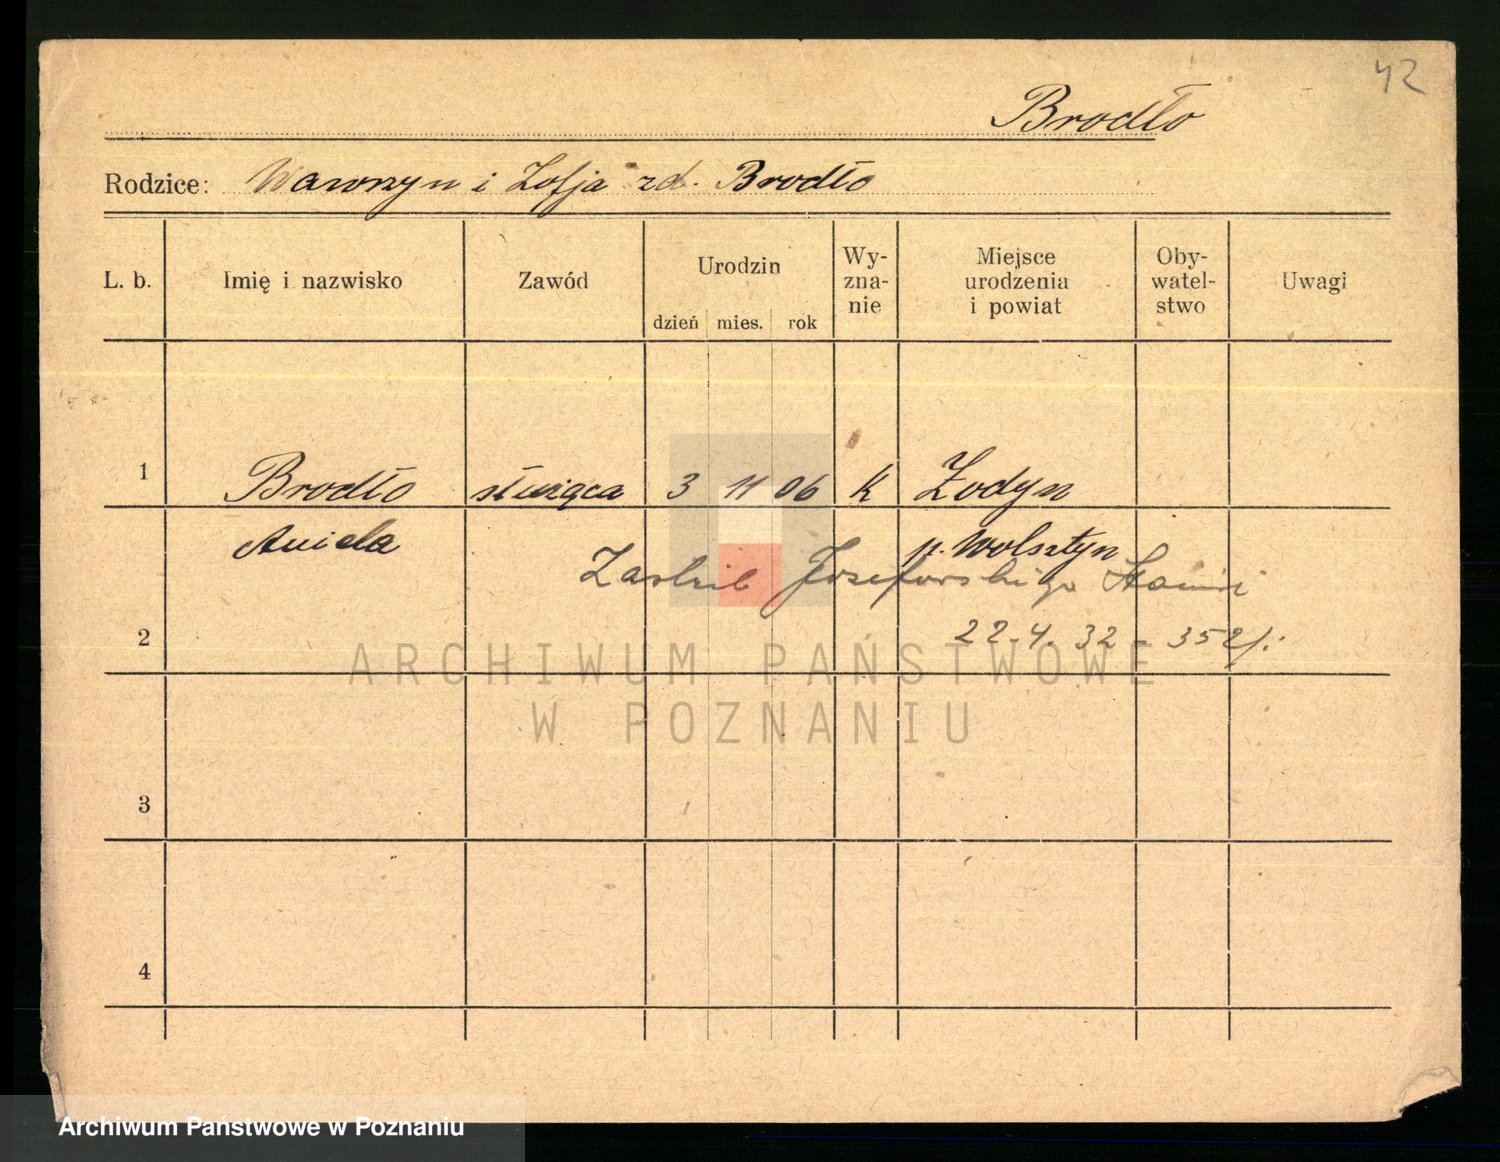 42
Brodło
Rodzice: Wawrzyn i Zofja zd. Brodło
L. b. Imię i nazwisko Zawód Urodzin Wy-zna-nie Miejsce urodzenia i powiat Oby-watel-stwo Uwagi
dzień mies. rok
1 Brodło służąca 3 11 06 k Żodyn
Aniela p. Wolsztyn
Zaślub Józefowskiego
2 22.4.32 - 352/.
ARCHIWUM PAŃSTWOWE
W POZNANIU
3
4
Archiwum Państwowe w Poznaniu